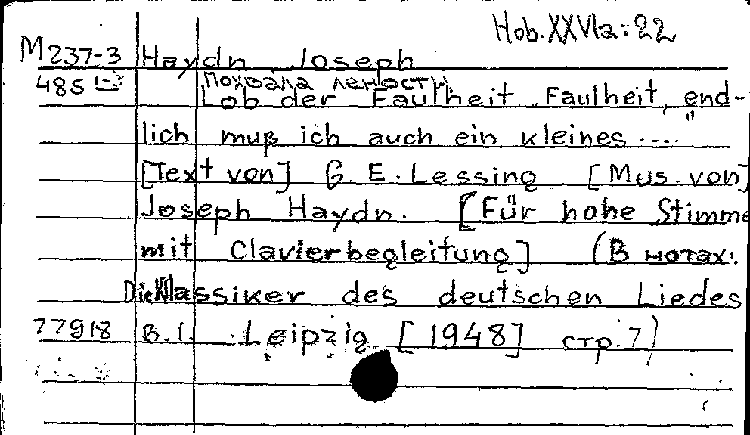 Hob.XXVIa:22
M237-3 Haydn Joseph
485
Похвала лености
Lob der Faulheit. Faulheit, end-
lich muß ich auch ein kleines ...
[Text von] G. E. Lessing [Mus. von]
Joseph Haydn. [Für hohe Stimme
mit Clavierbegleitung] (В нотах:
Die Klassiker des deutschen Liedes
77918 B.I. Leipzig [1948] стр. 7)